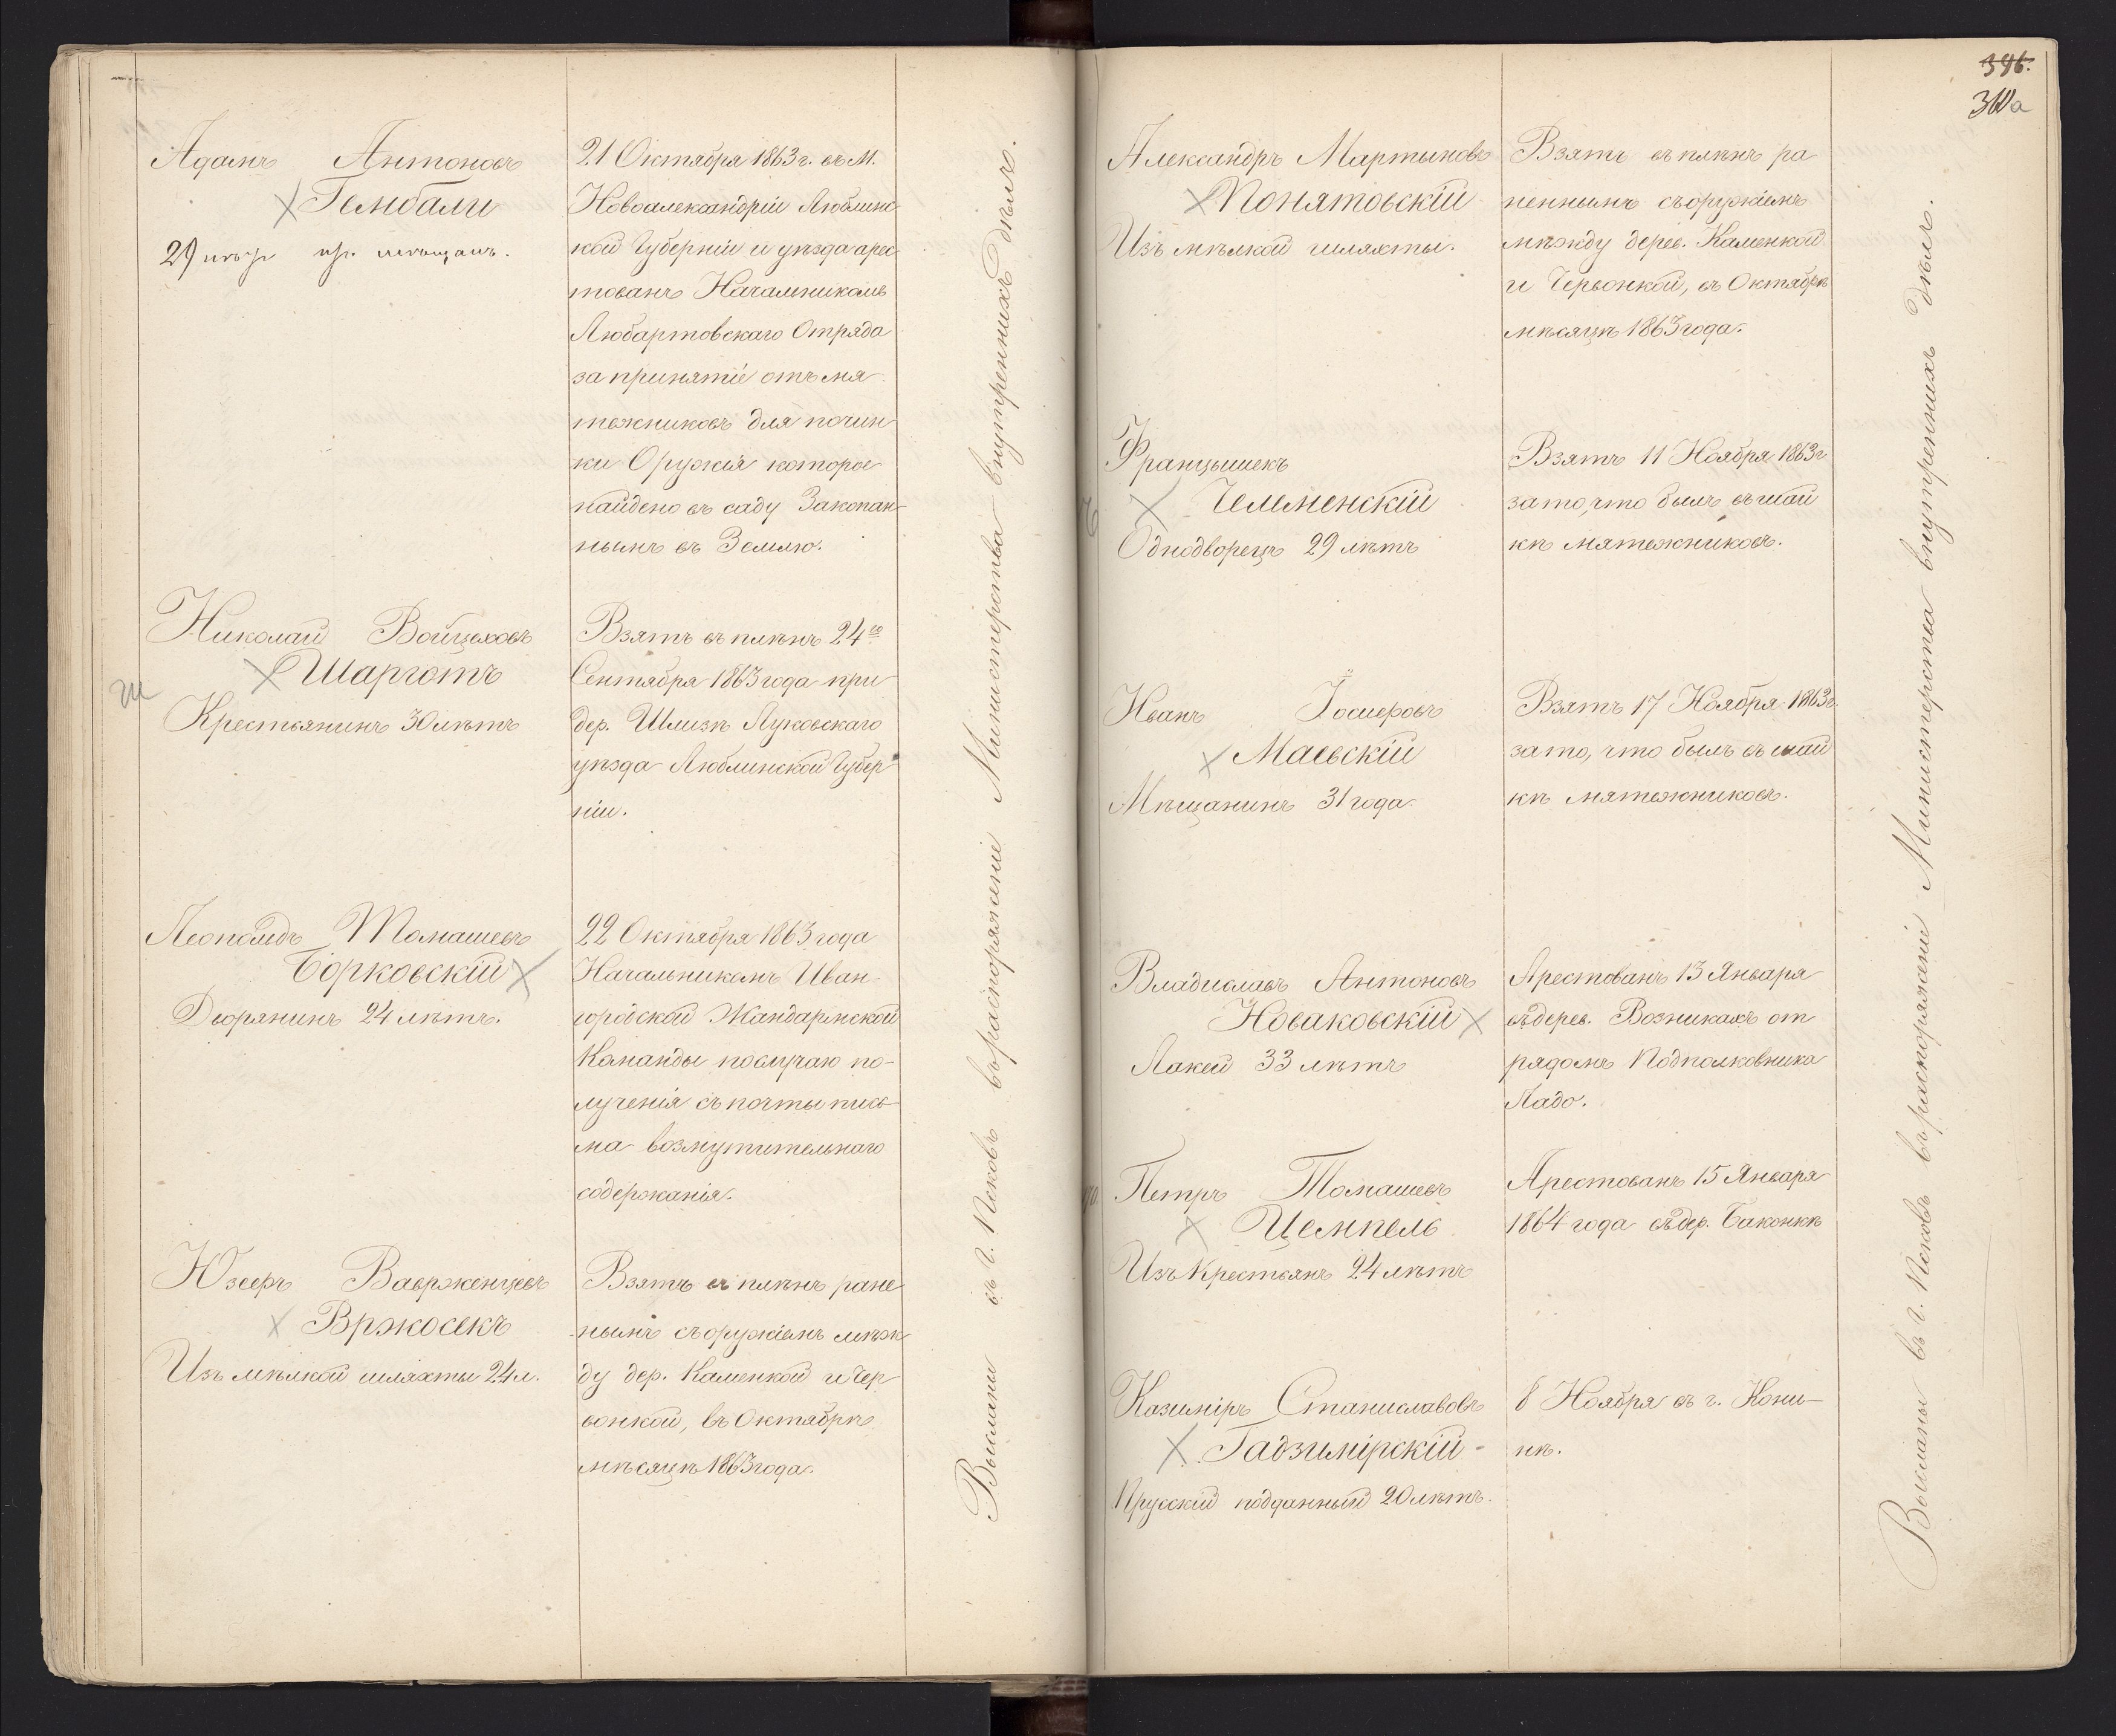 Адамъ Антоновъ
Гембали
29 лѣтъ изъ мѣщанъ.
21 Октября 1863 г. въ М.
Новоалександріи Люблинс-
кой Губерніи и уѣзда арес-
тованъ Начальникомъ
Любартовскаго Отряда
за принятіе отъ мя-
тежниковъ для почин-
ки Оружія которое
найдено въ саду Закопан-
нымъ въ Землю.
Николай Войцеховъ
Шарготъ
ш
Крестьянинъ 30 лѣтъ
Взятъ въ плѣнъ 24го
Сентября 1863 года при
дер. Шлизѣ Луковскаго
уѣзда Люблинской Губер
ніи.
Леопольдъ Томашевъ
Борковскій
Дворянинъ 24 лѣтъ.
22 Октября 1863 года
Начальникомъ Иван-
городской Жандармской
Команды по случаю по-
лученія съ почты пись-
ма возмутительнаго
содержанія.
Юзефъ Вавржонцевъ
Вржосекъ
Изъ мѣлкой шляхты 24 л.
Взятъ въ плѣнъ ране
нымъ съ оружіемъ мѣж
ду дер. Каменкой и Чер
вонкой, въ Октябрѣ
мѣсяцѣ 1863 года.
Высланы въ г. Псковъ въ распоряженіе Министерства внутреннихъ дѣлъ.
396.
310а
Александръ Мартыновъ
Понятовскій
Изъ мѣлкой шляхты.
Взятъ въ плѣнъ ра
неннымъ съ оружіемъ
мѣжду дерев. Каменкой
и Червонкой, въ Октябрѣ
мѣсяцѣ 1863 года.
Францышекъ
Челменскій
Однодворецъ 29 лѣтъ
Взятъ 11 Ноября 1863 г
за то, что былъ въ шай
кѣ мятежниковъ.
Иванъ Іосиеровъ
Маевскій
Мѣщанинъ 31 года
Взятъ 17 Ноября 1863 г.
за то, что былъ въ шай
кѣ мятежниковъ.
Владиславъ Антоновъ
Новаковскій
Лакей 33 лѣтъ
Арестованъ 13 Января
въ дерев. Возникахъ от
рядомъ Подполковника
Ладо.
Петръ Томашевъ
Цемпель
Изъ Крестьянъ 24 лѣтъ
Арестованъ 15 Января
1864 года въ дер. Баконкѣ
Казиміръ Станиславовъ
Гадзимірскій
Прусскій подданный 20 лѣтъ.
8 Ноября въ г. Кони-
нѣ.
Высланы въ г. Псковъ въ распоряженіе Министерства внутреннихъ дѣлъ.